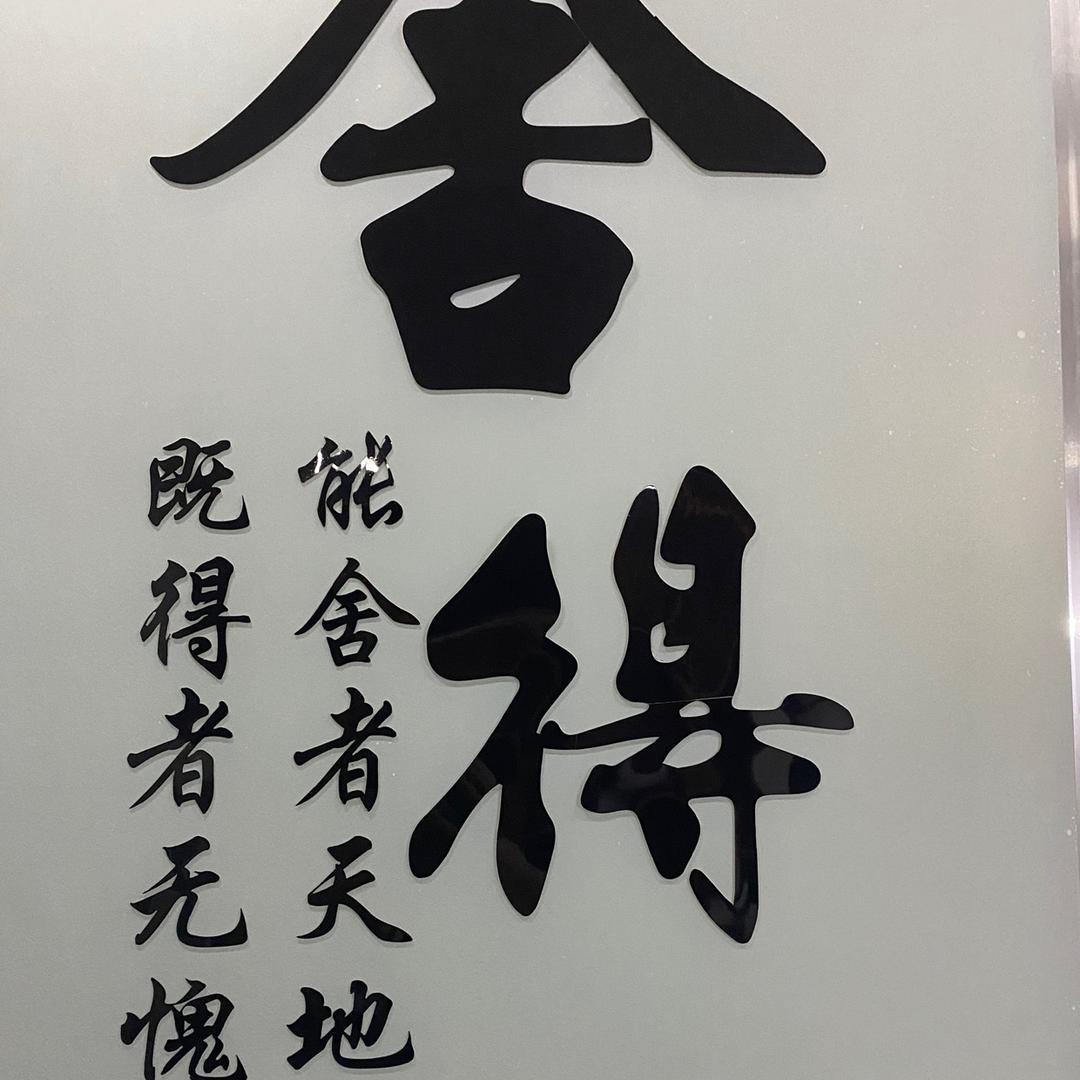 舍得
能舍者天地
既得者无愧